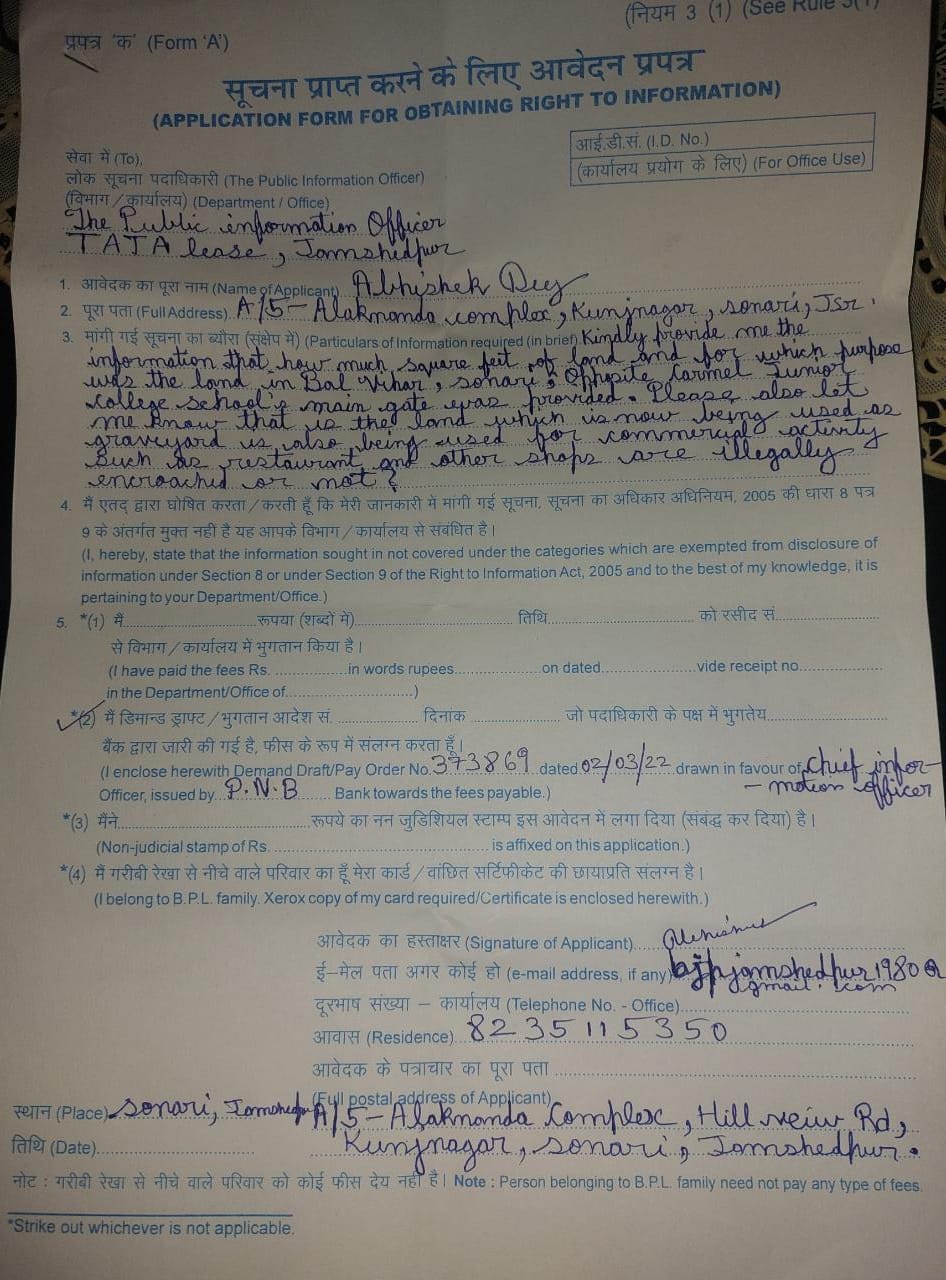 (नियम 3 (1) (See Rule 3(1)
प्रपत्र 'क' (Form 'A')
सूचना प्राप्त करने के लिए आवेदन प्रपत्र
(APPLICATION FORM FOR OBTAINING RIGHT TO INFORMATION)
आई.डी.सं. (I.D. No.)
(कार्यालय प्रयोग के लिए) (For Office Use)
सेवा में (To),
लोक सूचना पदाधिकारी (The Public Information Officer)
(विभाग / कार्यालय) (Department / Office)
The Public information Officer
TATA lease, Jamshedpur
1. आवेदक का पूरा नाम (Name of Applicant) Abhishek Dey
2. पूरा पता (Full Address) A/5- Alaknanda complex, Kunjnagar, sonari, Jsr.
3. मांगी गई सूचना का ब्यौरा (संक्षेप में) (Particulars of Information required (in brief) Kindly provide me the
information that how much square feit of land and for which purpose
was the land in Bal Vihar, sonari, Opposite Carmel Junior
college school's main gate was provided. Please also let
me know that is the land which is now being used as
graveyard is also being used for commercial activity
such as restaurant and other shops are illegally
encroached or not?
4. मैं एतद् द्वारा घोषित करता / करती हूँ कि मेरी जानकारी में मांगी गई सूचना, सूचना का अधिकार अधिनियम, 2005 की धारा 8 पत्र
9 के अंतर्गत मुक्त नहीं है यह आपके विभाग / कार्यालय से संबंधित है।
(I, hereby, state that the information sought in not covered under the categories which are exempted from disclosure of
information under Section 8 or under Section 9 of the Right to Information Act, 2005 and to the best of my knowledge, it is
pertaining to your Department/Office.)
5. *(1) मैं.............................रूपया (शब्दों में)..................................... तिथि................................... को रसीद सं..........................
से विभाग / कार्यालय में भुगतान किया है।
(I have paid the fees Rs. ..................in words rupees....................on dated......................vide receipt no....................
in the Department/Office of................................)
*(2) मैं डिमान्ड ड्राफ्ट / भुगतान आदेश सं. ................... दिनांक ..................... जो पदाधिकारी के पक्ष में भुगतेय.............................
बैंक द्वारा जारी की गई है, फीस के रूप में संलग्न करता हूँ।
(I enclose herewith Demand Draft/Pay Order No. 373869 dated 02/03/22 drawn in favour of chief infor-
Officer, issued by P.N.B Bank towards the fees payable.) - mation officer
*(3) मैंने..............................................रूपये का नन जुडिशियल स्टाम्प इस आवेदन में लगा दिया (संबंद्ध कर दिया) है।
(Non-judicial stamp of Rs. .................................................... is affixed on this application.)
*(4) मैं गरीबी रेखा से नीचे वाले परिवार का हूँ मेरा कार्ड / वांछित सर्टिफीकेट की छायाप्रति संलग्न है।
(I belong to B.P.L. family. Xerox copy of my card required/Certificate is enclosed herewith.)
आवेदक का हस्ताक्षर (Signature of Applicant)
ई-मेल पता अगर कोई हो (e-mail address, if any) bjpjamshedpur1980@
gmail.com
दूरभाष संख्या – कार्यालय (Telephone No. - Office)
आवास (Residence) 8235115350
आवेदक के पत्राचार का पूरा पता
(Full postal address of Applicant)
स्थान (Place) Sonari, Jamshedpur A/5- Alaknanda Complex, Hill veiw Rd,
तिथि (Date)........................... Kunjnagar, sonari, Jamshedpur.
नोट : गरीबी रेखा से नीचे वाले परिवार को कोई फीस देय नहीं है। Note : Person belonging to B.P.L. family need not pay any type of fees.
*Strike out whichever is not applicable.